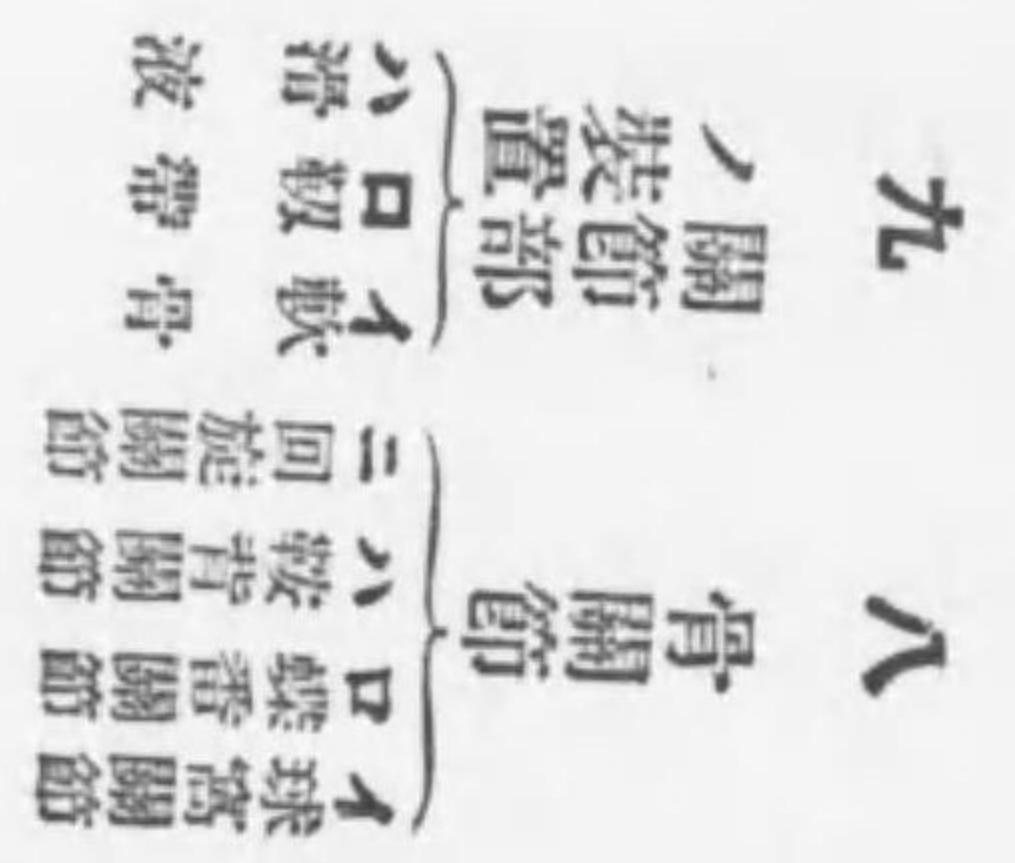 八
骨關節
イ 球窩關節
ロ 蝶番關節
ハ 鞍背關節
ニ 回旋關節
九
關節部
ノ裝置
イ 軟骨
ロ 靱帶
ハ 滑液